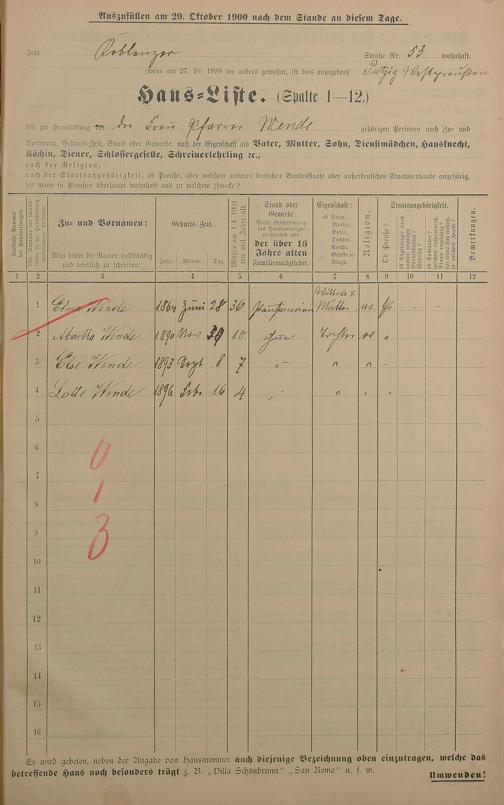 Auszufüllen am 29. Oktober 1900 nach dem Stande an diesem Tage.
Jetzt Koblenzer Straße Nr. 53 wohnhaft.
(wenn am 27. 10. 1899 wo anders gewohnt, ist dies anzugeben) Putzig Westpreußen
Haus-Liste. (Spalte 1—12.)
der zur Haushaltung der Frau Pfarrer Wende gehörigen Personen nach Zu- und
Vornamen, Geburts-Zeit, Stand oder Gewerbe, nach der Eigenschaft als Vater, Mutter, Sohn, Dienstmädchen, Hausknecht,
Köchin, Diener, Schlossergeselle, Schreinerlehrling ec.,
nach der Religion,
nach der Staatsangehörigkeit, ob Preuße, oder welchem anderen deutschen Bundesstaate oder außerdeutschen Staatsverbande angehörig,
bis wann in Preußen überhaupt wohnhaft und zu welchem Zwecke?
Zu- und Vornamen:
Man bittet die Namen vollständig
und leserlich zu schreiben.
Geburts-Zeit.
Jahr. Monat. Tag
Mithin am 1. 4. 1901
wie viel Jahre alt.
Stand oder
Gewerbe
der über 16
Jahre alten
Familienmitglieder.
Eigenschaft:
ob Vater,
Mutter,
Sohn,
Tochter,
Knecht,
Geselle oder
Magd.
Religion.
Staatsangehörigkeit.
Ob Preuße?
Bemerkungen.
1 2 3 4 5 6 7 8 9 10 11 12
1 Wende 1864 Juni 28 36 Mutter
2 Martha Wende 1890 Nov 30 10 Tochter
3 Else Wende 1893 Sept 8 7 " "
4 Lotte Wende 1896 Feb. 16 4 " "
5
6
7
8
9
10
11
12
13
14
15
16
0
1
3
Es wird gebeten, neben der Angabe von Hausnummer auch diejenige Bezeichnung oben einzutragen, welche das
betreffende Haus noch besonders trägt z. B. „Villa Schönbrunn" „San Remo" u. s. w.
Umwenden!